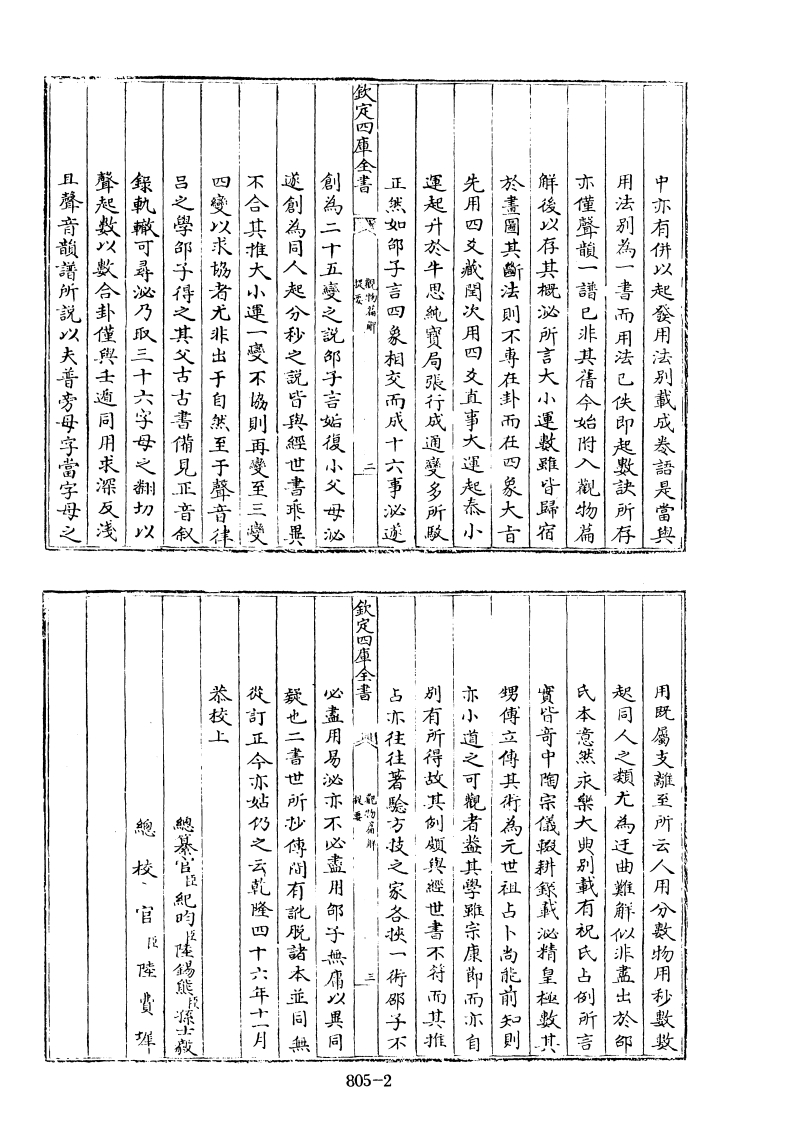 中亦有併以起發用法别載成卷語是當與
用法别為一書而用法已佚即起數訣所存
亦僅聲韻一譜已非其舊今始附入觀物篇
解後以存其概泌所言大小運數雖皆歸宿
於畫圖其斷法則不専在卦而在四象大㫖
先用四爻藏閏次用四爻直事大運起泰小
運起升於牛思純寶局張行成通變多所駮
正然如邵子言四象相交而成十六事泌遂
欽定四庫全書
觀物篇解
提要
二
創為二十五變之説邵子言姤復小父母泌
遂創為同人起分秒之説皆與經世書乖異
不合其推大小運一變不協則再變至三變
四變以求協者尤非出于自然至于聲音律
吕之學邵子得之其父古古書備見正音叙
録軌轍可尋泌乃取三十六字母之翻切以
聲起數以數合卦僅與壬遁同用求深反淺
且聲音韻譜所説以夫普旁母字當字母之
用既屬支離至所云人用分數物用秒數數
起同人之類尤為迂曲難解似非盡出於邵
氏本意然永樂大典别載有祝氏占例所言
實皆竒中陶宗儀輟耕録載泌精皇極數其
甥傅立傳其術為元世祖占卜尚能前知則
亦小道之可觀者葢其學雖宗康節而亦自
别有所得故其例頗與經世書不符而其推
占亦往往著驗方技之家各挾一術邵子不
欽定四庫全書
觀物篇解
提要
三
必盡用易泌亦不必盡用邵子無庸以異同
疑也二書世所抄傳間有訛脱諸本並同無
從訂正今亦姑仍之云乾隆四十六年十一月
恭校上
總纂官臣紀昀臣陸錫熊臣孫士毅
總校官臣陸費墀
805-2